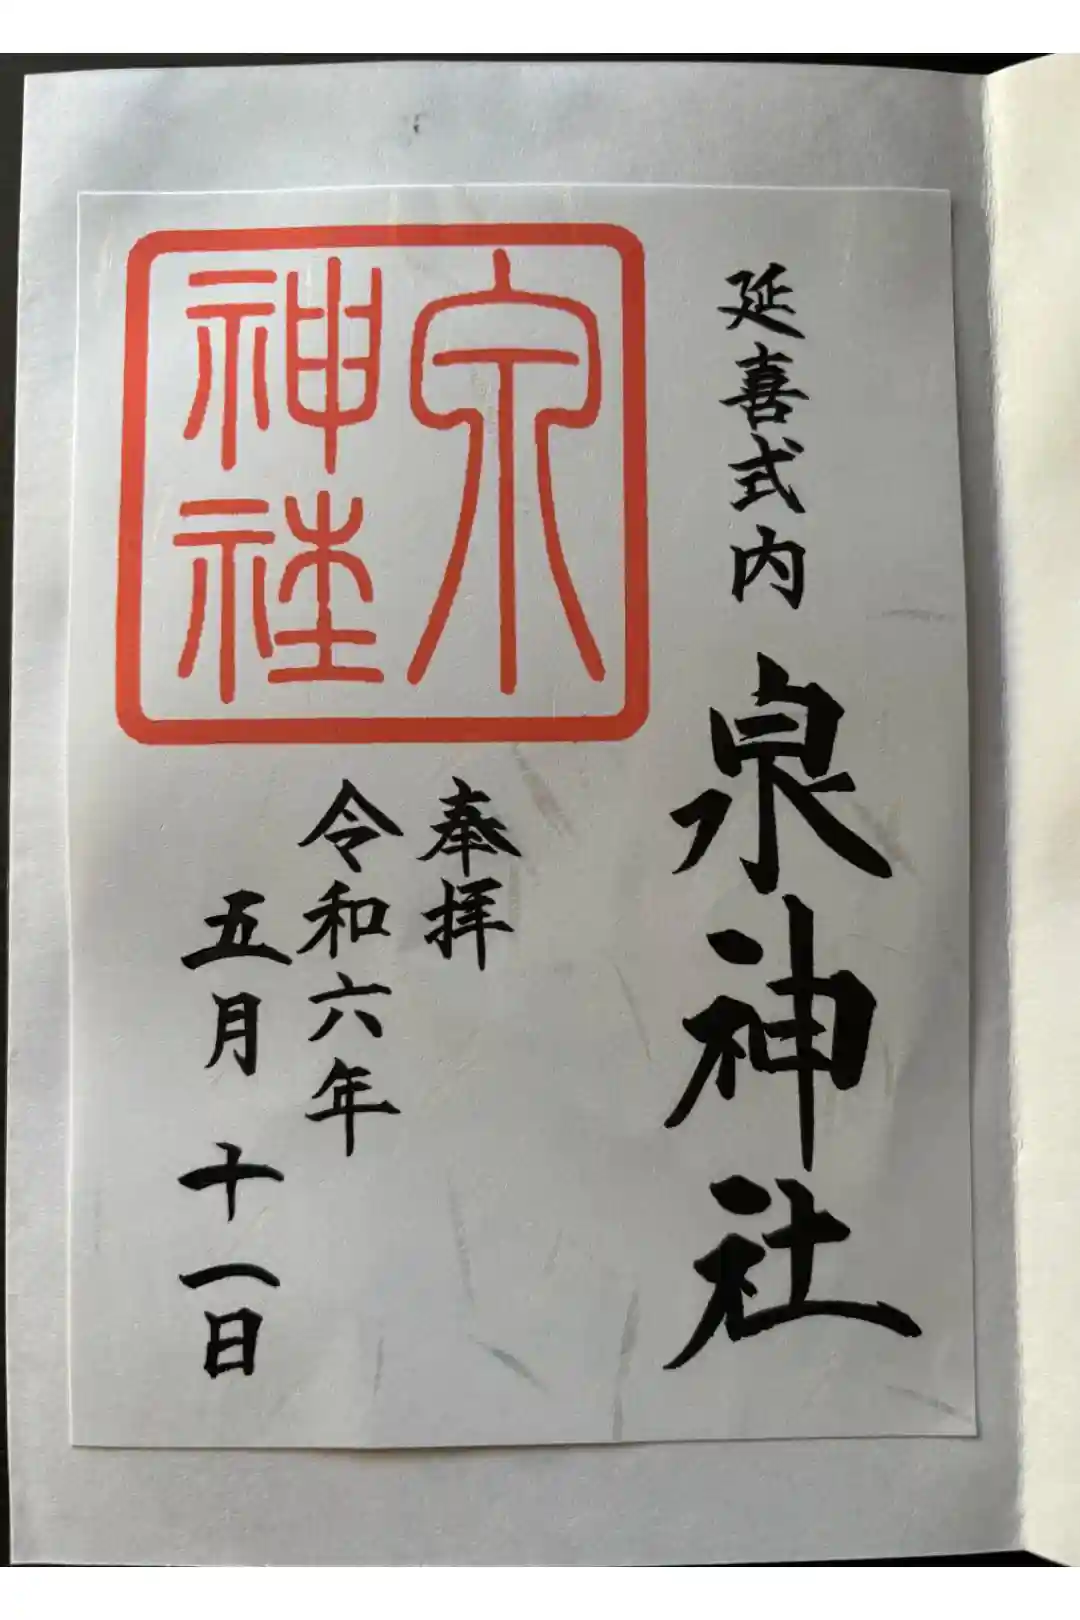 延喜式内 泉神社
泉
神社
奉拝
令和六年
五月十一日